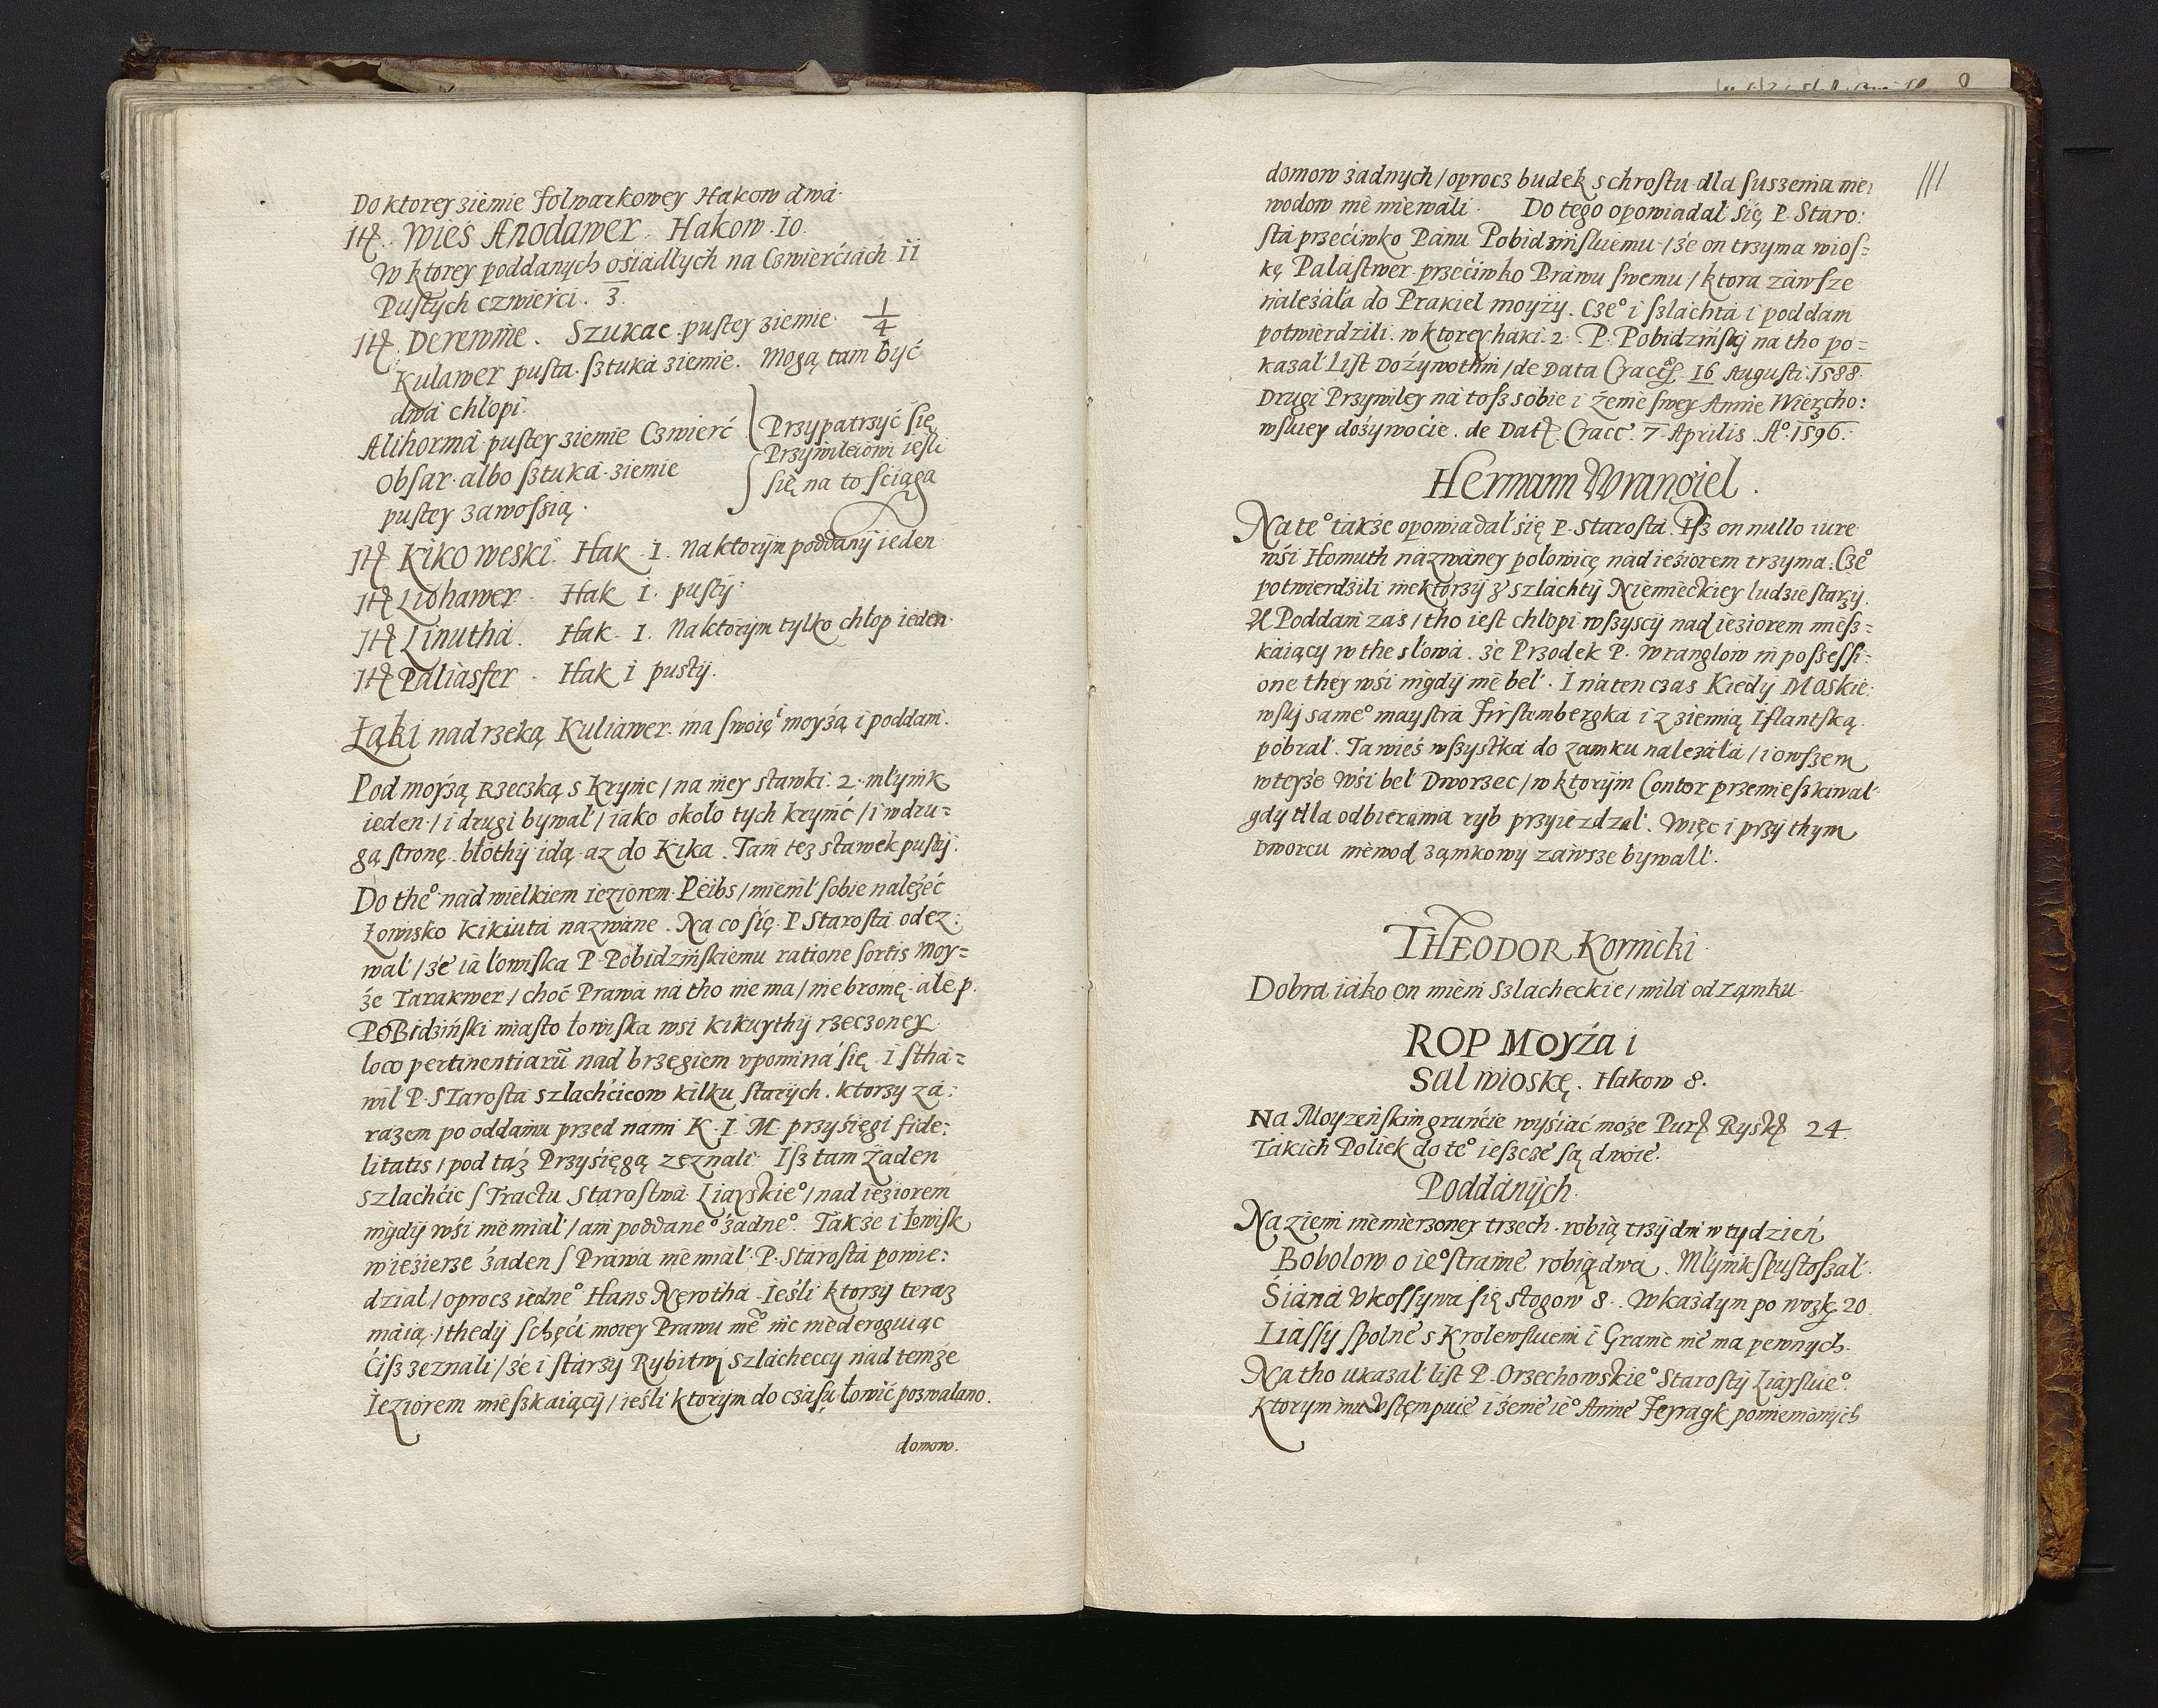 Do ktorey ziemie folwarkowey Hakow dwa.
Itē. Wieś Anodawer. Hakow. 10.
W ktorey poddanych ośiadłych na Czwierćiach 11
Pustych czwierći. 3.
Itē. Derewnie. Szukac pustey ziemie 1/4
Kulawer pusta sztuka ziemie. Mogą tam być
dwa chłopi.
Alihorma pustey ziemie Czwierć
Obsar albo sztuka ziemie
pustey zawossią.
Przypatrzyć się
Przywileiowi ieśli
się na to sciąga
Itē Kikoweski. Hak 1. Na ktorym poddany ieden
Itē Liohawer. Hak 1. pusty.
Itē Linutha. Hak. 1. Na ktorym tylko chłop ieden.
Itē Paliasfer. Hak 1 pusty.
Łąki nad rzeką Kuliawer. ma swoię moyżą i poddani.
Pod moyżą Rzeczką s Krynic / na niey stawki. 2. młynik
ieden / i drugi bywał / iako około tych krynić / i w dru=
gą stronę błothy idą az do Kika. Tam tez stawek pusty.
Do the° nad wielkiem Ieziorem Peibs / mienił sobie należeć
Łowisko Kikiuta nazwane. Na co się P Starosta odez:
wał / że ia łowiska P Pobidzińskiemu ratione sortis Moy=
że Tarakwer / choć Prawa na tho nie ma / nie bronię. ale p.
Pobidziński miasto łowiska wsi kikuythy rzeczoney
loco pertinentiarū nad brzegiem upomina się. I stha=
wił P. Starosta szlachćicow kilku starych. ktorzy za:
razem po oddaniu przed nami K. I. M. przyśięgi fide:
litatis / pod tąz Przyśięgą zeznali. Isz tam Żaden
szlachćic s Tractu Starostwa Liayskie° / nad ieziorem
nigdy wśi nie miał / ani poddane° żadne°. Także i Łowisk
wieźierze żaden s Prawa nie miał. P. Starosta powie:
dział / oprocz iedne° Hans Nerotha. Ieśli ktorzy teraz
maią / thedy s chęći moiey Prawu me° nic niederoguiąc
Ćisz zeznali / że i starzy Rybitwi szlacheccy nad temże
Ieziorem mieszkaiący / ieśli ktorym do czasu łowić pozwalano.
domow.
111
domow żadnych / oprocz budek s chrostu dla suszenia nie:
wodow nie miewali. Do tego opowiadał się P. Staro:
sta przećiwko Panu Pobidzińsluemu / że on trzyma wios=
kę Palastwer przećiwko Prawu swemu / ktora zawsze
należała do Prakiel moyży. Cze° i szlachta i poddani
potwierdzili. w ktorey haki. 2. P. Pobidziński na tho po=
kazał List Dożywothni / de Data Cracē. 16 Augusti. 1588.
Drugi Przywiley na tosz sobie i żenie swey Annie Wierzcho:
wsluey dożywoćie. de Datē. Cracc. 7 Aprilis. A° 1596.
Hermann Wrangiel.
Na te° także opowiadał się P. Starosta. Isz on nullo iure
wśi Homuth nazwaney połowicę nad ieźiorem trzyma. Cze°
potwierdźili niektorzy z szlachty Niemieckiey ludzie starzy.
A Poddani zaś / tho iest chłopi wszyscy nad ieziorem miesz=
kaiący w the słowa. że Przodek P. Wranglow in possessi:
one they wśi nigdy nie beł. I na ten czas Kiedy Moskie:
wsky same° maystra Firstembergka i z ziemią Iflantską
pobrał. Ta wieś wszystka do zamku należała / i owszem
w teyże Wśi beł Dworzec / w ktorym Contor przemieszkiwał
gdy dla odbierania ryb przyiezdzał. Więc i przy thym
Dworcu niewod zamkowy zawsze bywałł.
THEODOR Kornicki
Dobra iako on mieni szlacheckie / mila od zamku
ROP Moyża i
Sal wioskę. Hakow 8.
Na Moyzeńskim grunćie wyśiać może Purē Ryskē 24.
Takich Poliek do te° ieszcze są dwoie.
Poddanych.
Na ziemi niemierzoney trzech. robią trzy dni w tydzień
Bobolow o ie° strawie robią dwa. Młynik spustoszał.
Śiana ukossywa się stogow 8. W każdym po wozk 20.
Liassy spolne s Krolewsluemi i Granic nie ma pewnych.
Na tho ukazał list P. Orzechowskie° Starosty Liaysluie°.
Ktorym mu ustempuie i żenie ie° Annie Feyragk pomienionych